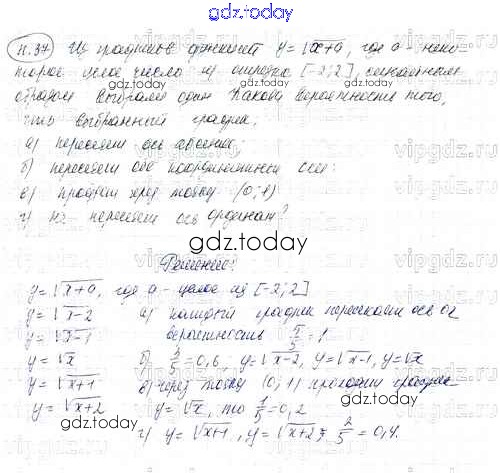 gdz.today
п.37 Из графиков функций y=√x+a, где a - неко
торое целое число из отрезка [-2;2], случайным
образом выбрали один. Какова вероятность того,
что выбранный график:
а) пересекает ось абсцисс;
б) пересекает обе координатные оси:
в) проходит через точку (0;1)
г) не пересекает ось ординат?
Решение:
y=√x+a, где a - целое из [-2;2]
y=√x-2 а) каждый график пересекает ось ox
y=√x-1 вероятность 5/5=1
y=√x б) 3/5=0,6; y=√x-2, y=√x-1, y=√x
y=√x+1 в) через точку (0;1) проходит график
y=√x+2 y=√x, то 1/5=0,2
г) y=√x+1, y=√x+2; 2/5=0,4.